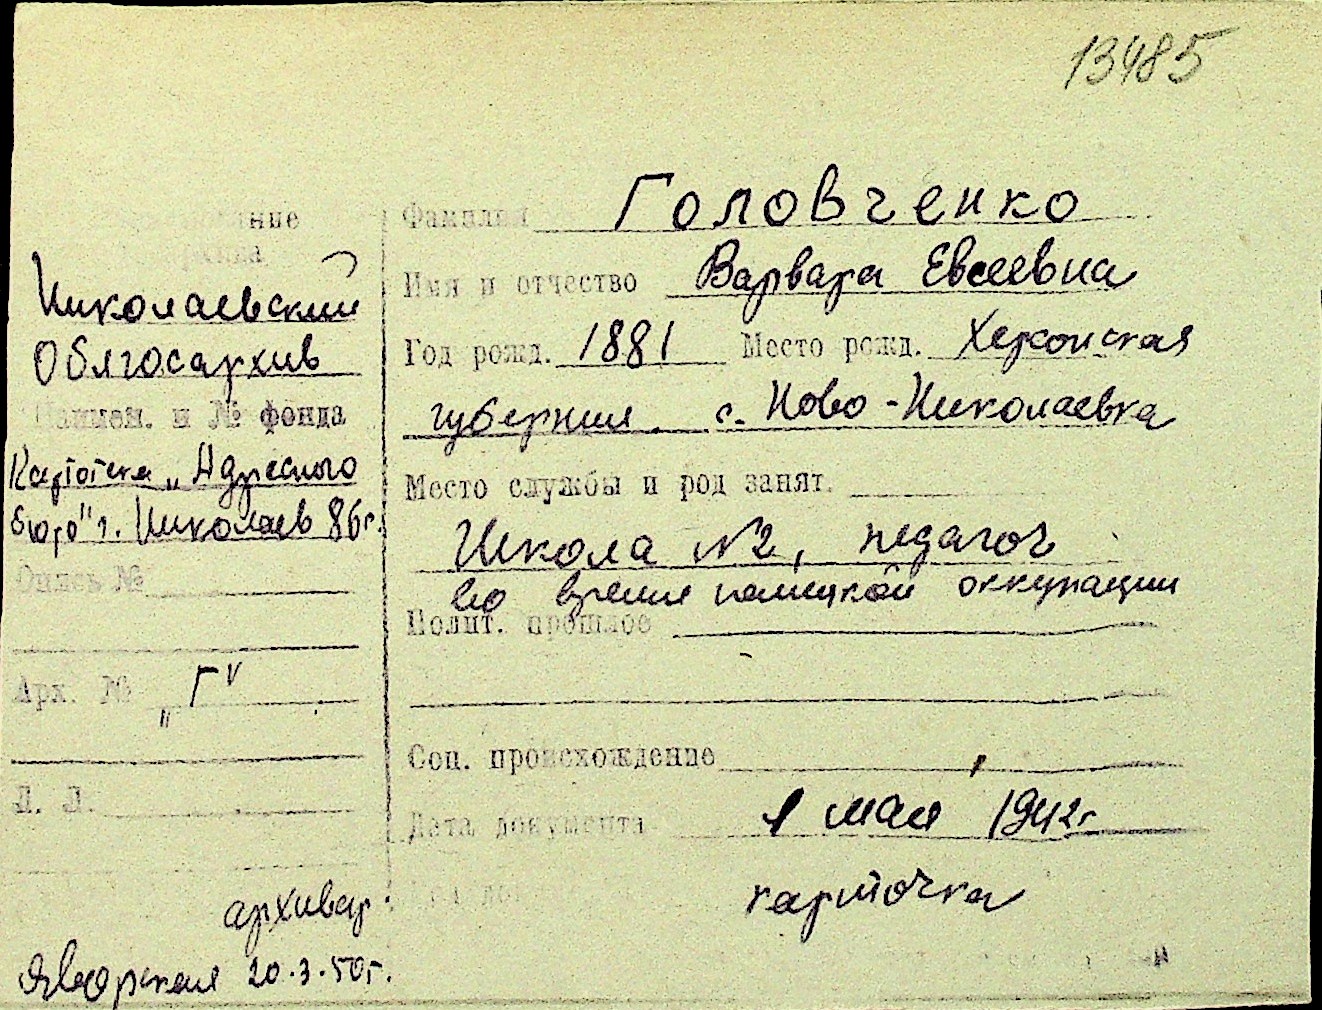 13485
ние
Николаевский
Облгосархив
Наимен. и № фонда
Картотека „Адресного
бюро" г. Николаев 86г.
Опись №
Арх. № „Г"
Л. Л.
архивар
Яворская 20.3.50г.
Фамилия Головченко
Имя и отчество Варвара Евсеевна
Год рожд. 1881 Место рожд. Херсонская
губерния с. Ново-Николаевка
Место службы и род занят.
Школа №2, педагог
во время немецкой оккупации
Полит. прошлое
Соц. происхождение
Дата документа 1 мая 1942г.
карточка